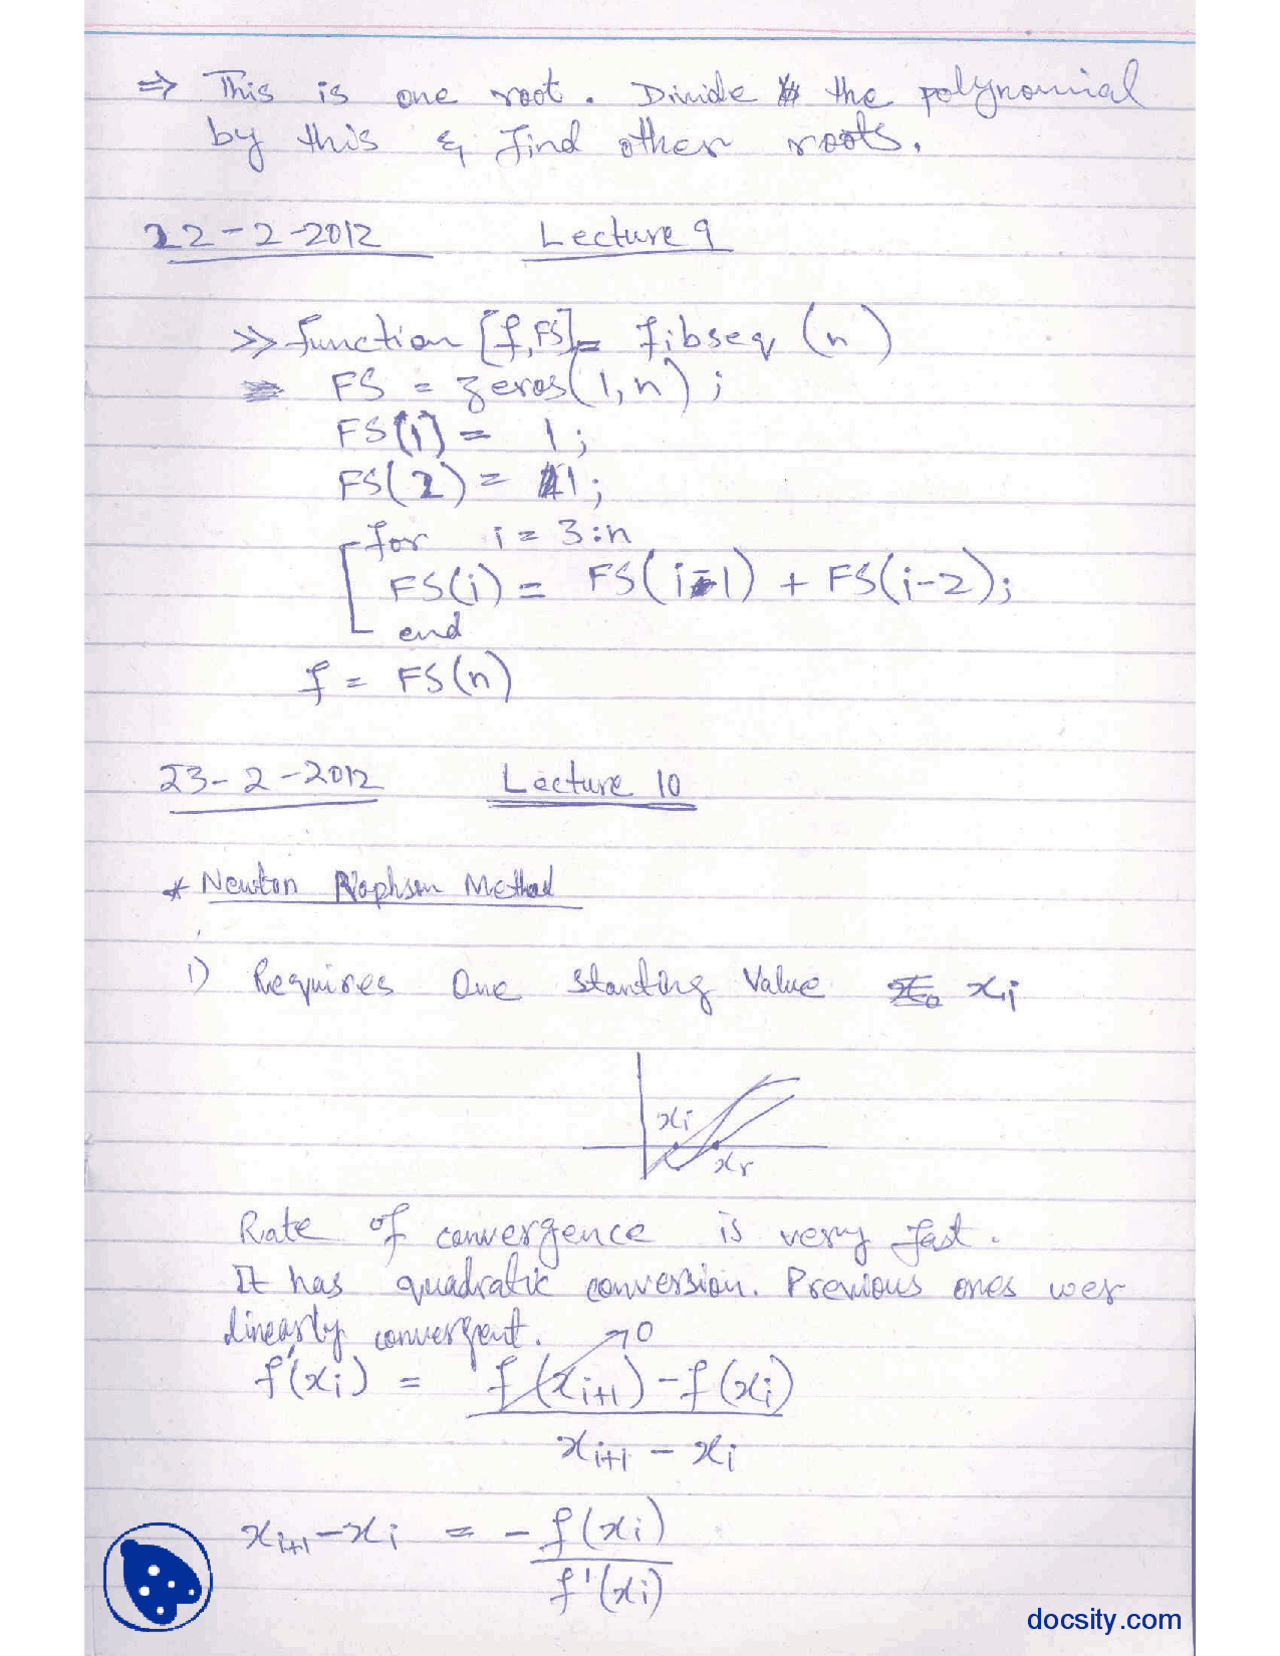 ⇒ This is one root. Divide the polynomial
by this & find other roots.
22-2-2012 Lecture 9
>> function [f,FS]= fibseq (n)
FS = zeros(1,n);
FS(1) = 1;
FS(2) = 1;
for i = 3:n
FS(i) = FS(i-1) + FS(i-2);
end
f = FS(n)
23-2-2012 Lecture 10
* Newton Raphson Method
1) Requires One starting Value xi
xi
xr
Rate of convergence is very fast.
It has quadratic conversion. Previous ones wer
linearly convergent.
f'(xi) = f(xi+1) - f(xi) → 0
xi+1 - xi
xi+1 - xi = - f(xi)
f'(xi)
docsity.com